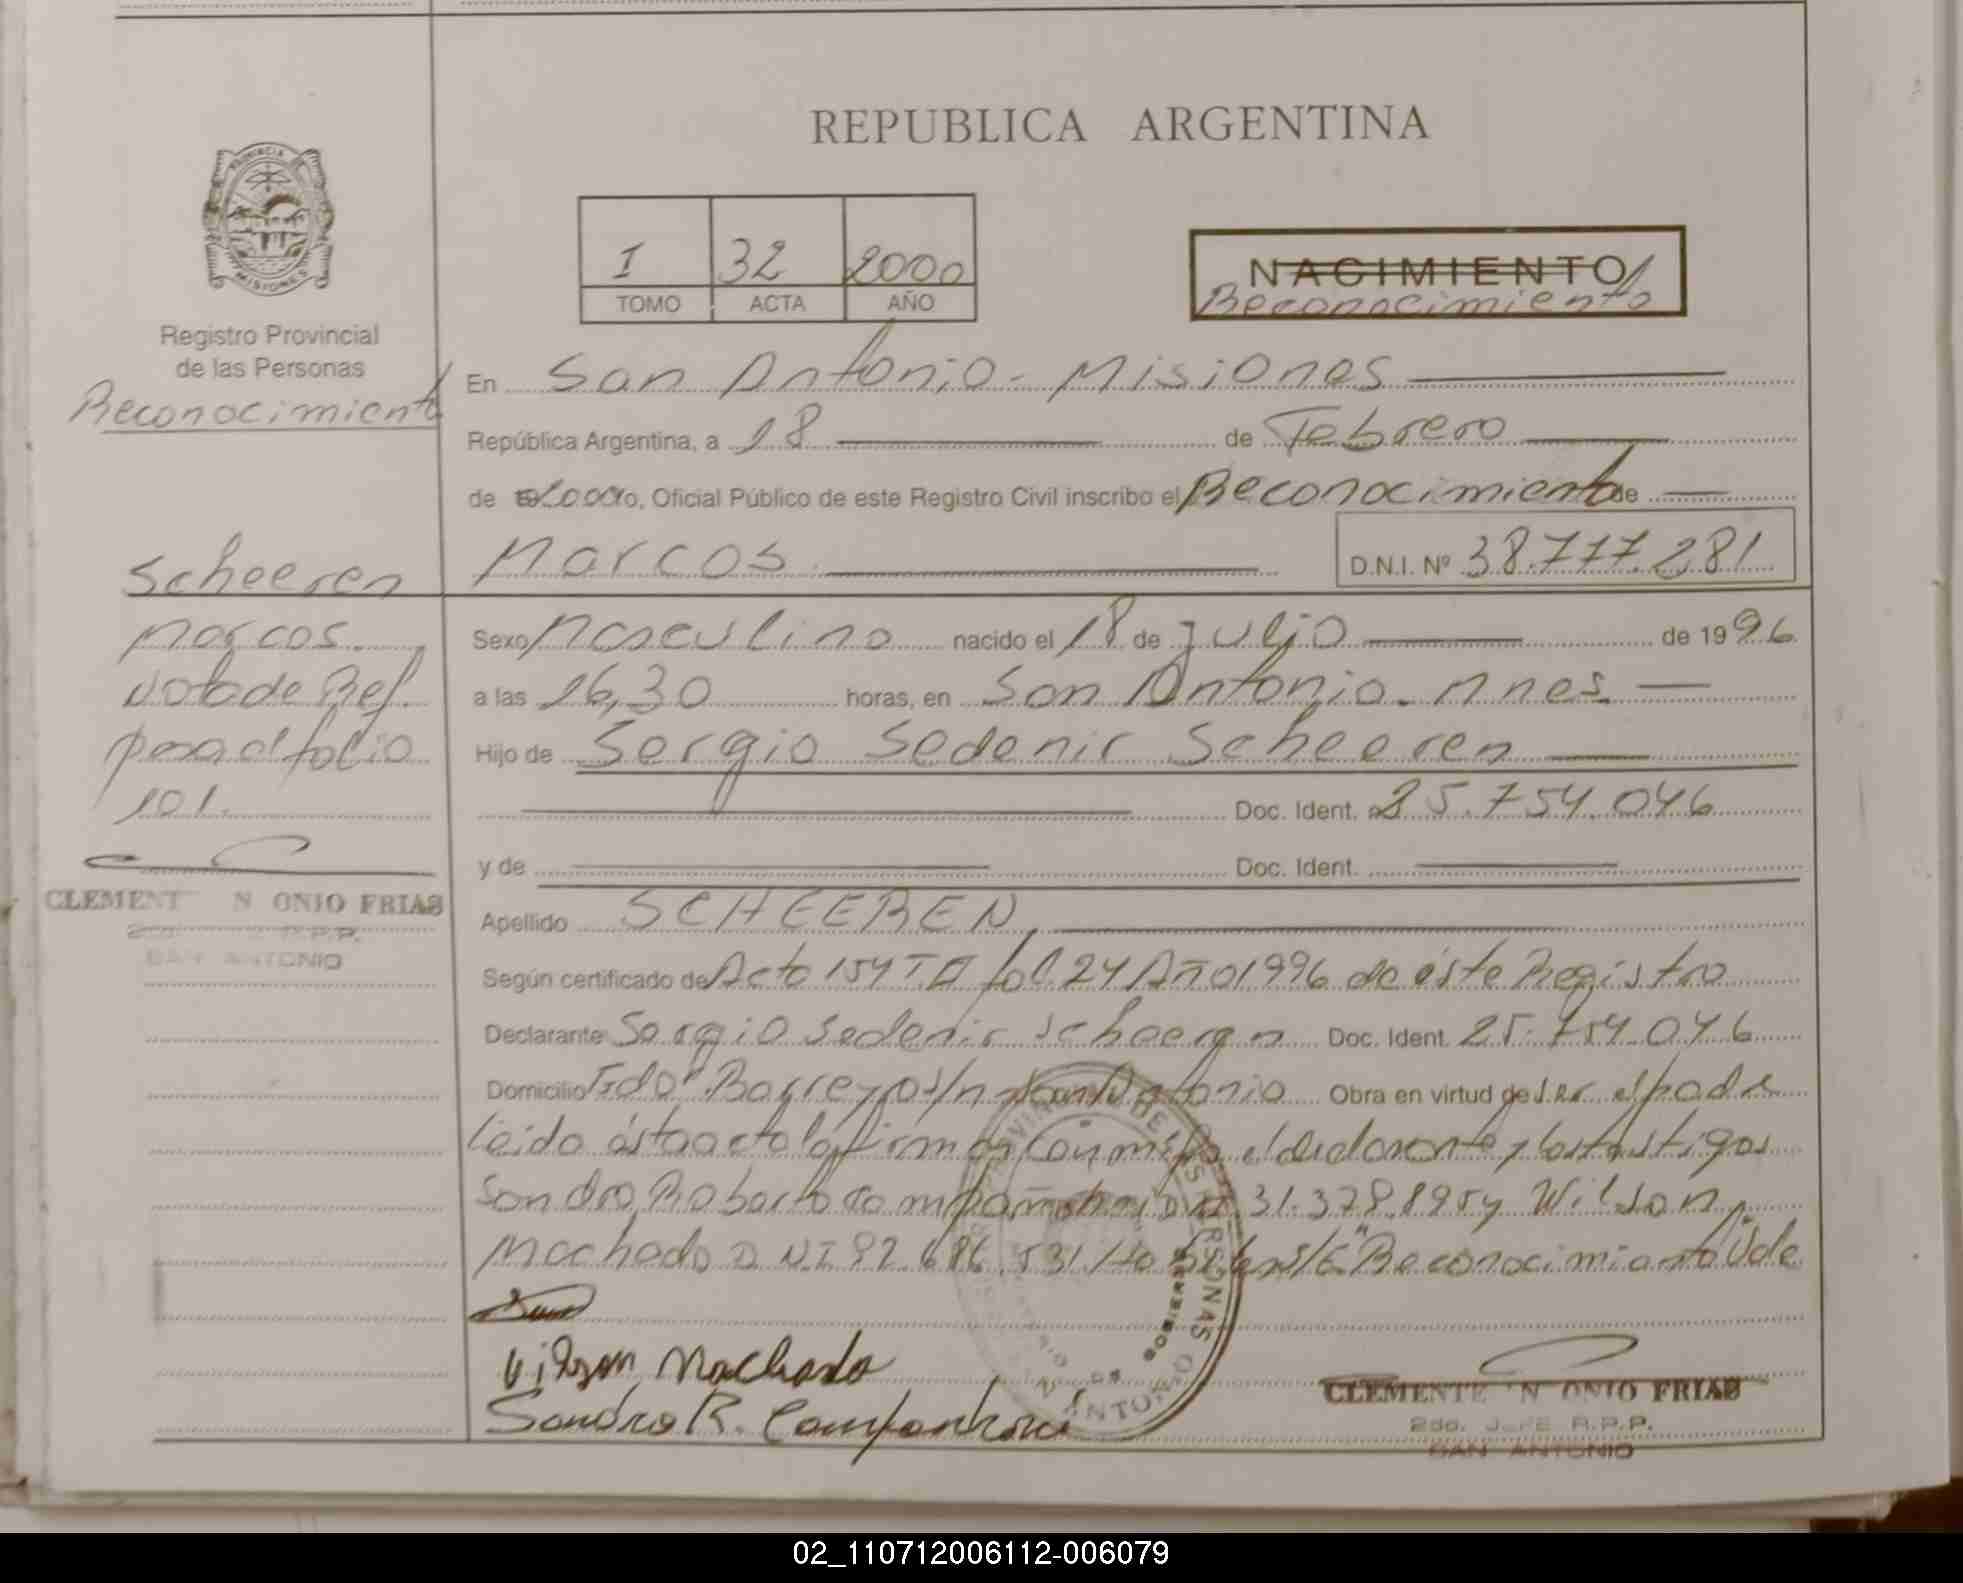 REPUBLICA ARGENTINA
PROVINCIA
MISIONES
Registro Provincial
de las Personas
Reconocimiento
I 32 2000
TOMO ACTA AÑO
NACIMIENTO/
Reconocimiento
En San Antonio - Misiones
República Argentina, a 18 de Febrero
de 2000 yo, Oficial Público de este Registro Civil inscribo el Reconocimiento de
Marcos D.N.I. Nº 38.777.281
Scheeren
Marcos.
Nota de Ref.
pasa al folio
101.
CLEMENT N ONIO FRIAS
2do. R.P.P.
SAN ANTONIO
Sexo Masculino nacido el 18 de Julio de 1996
a las 16,30 horas, en San Antonio - Mnes.
Hijo de Sergio Sedenir Scheeren
Doc. Ident. 25.754.046
y de Doc. Ident.
Apellido SCHEEREN
Según certificado de Acta 154 T II fol. 24 Año 1996 de éste Registro
Declarante Sergio Sedenir Scheeren Doc. Ident. 25.754.046
Domicilio Fdo Barreyro S/n San Antonio Obra en virtud de ser el padre
Leida ésta acta la firman conmigo el declarante y los testigos
Sandro Roberto DNI 31.378.895 y Wilson
Machado DNI 92.686.531 S/E "Reconocimiento" Vale
Wilson Machado
Sandro R.
CLEMENTE N ONIO FRIAS
2do. JEFE R.P.P.
SAN ANTONIO
02_110712006112-006079